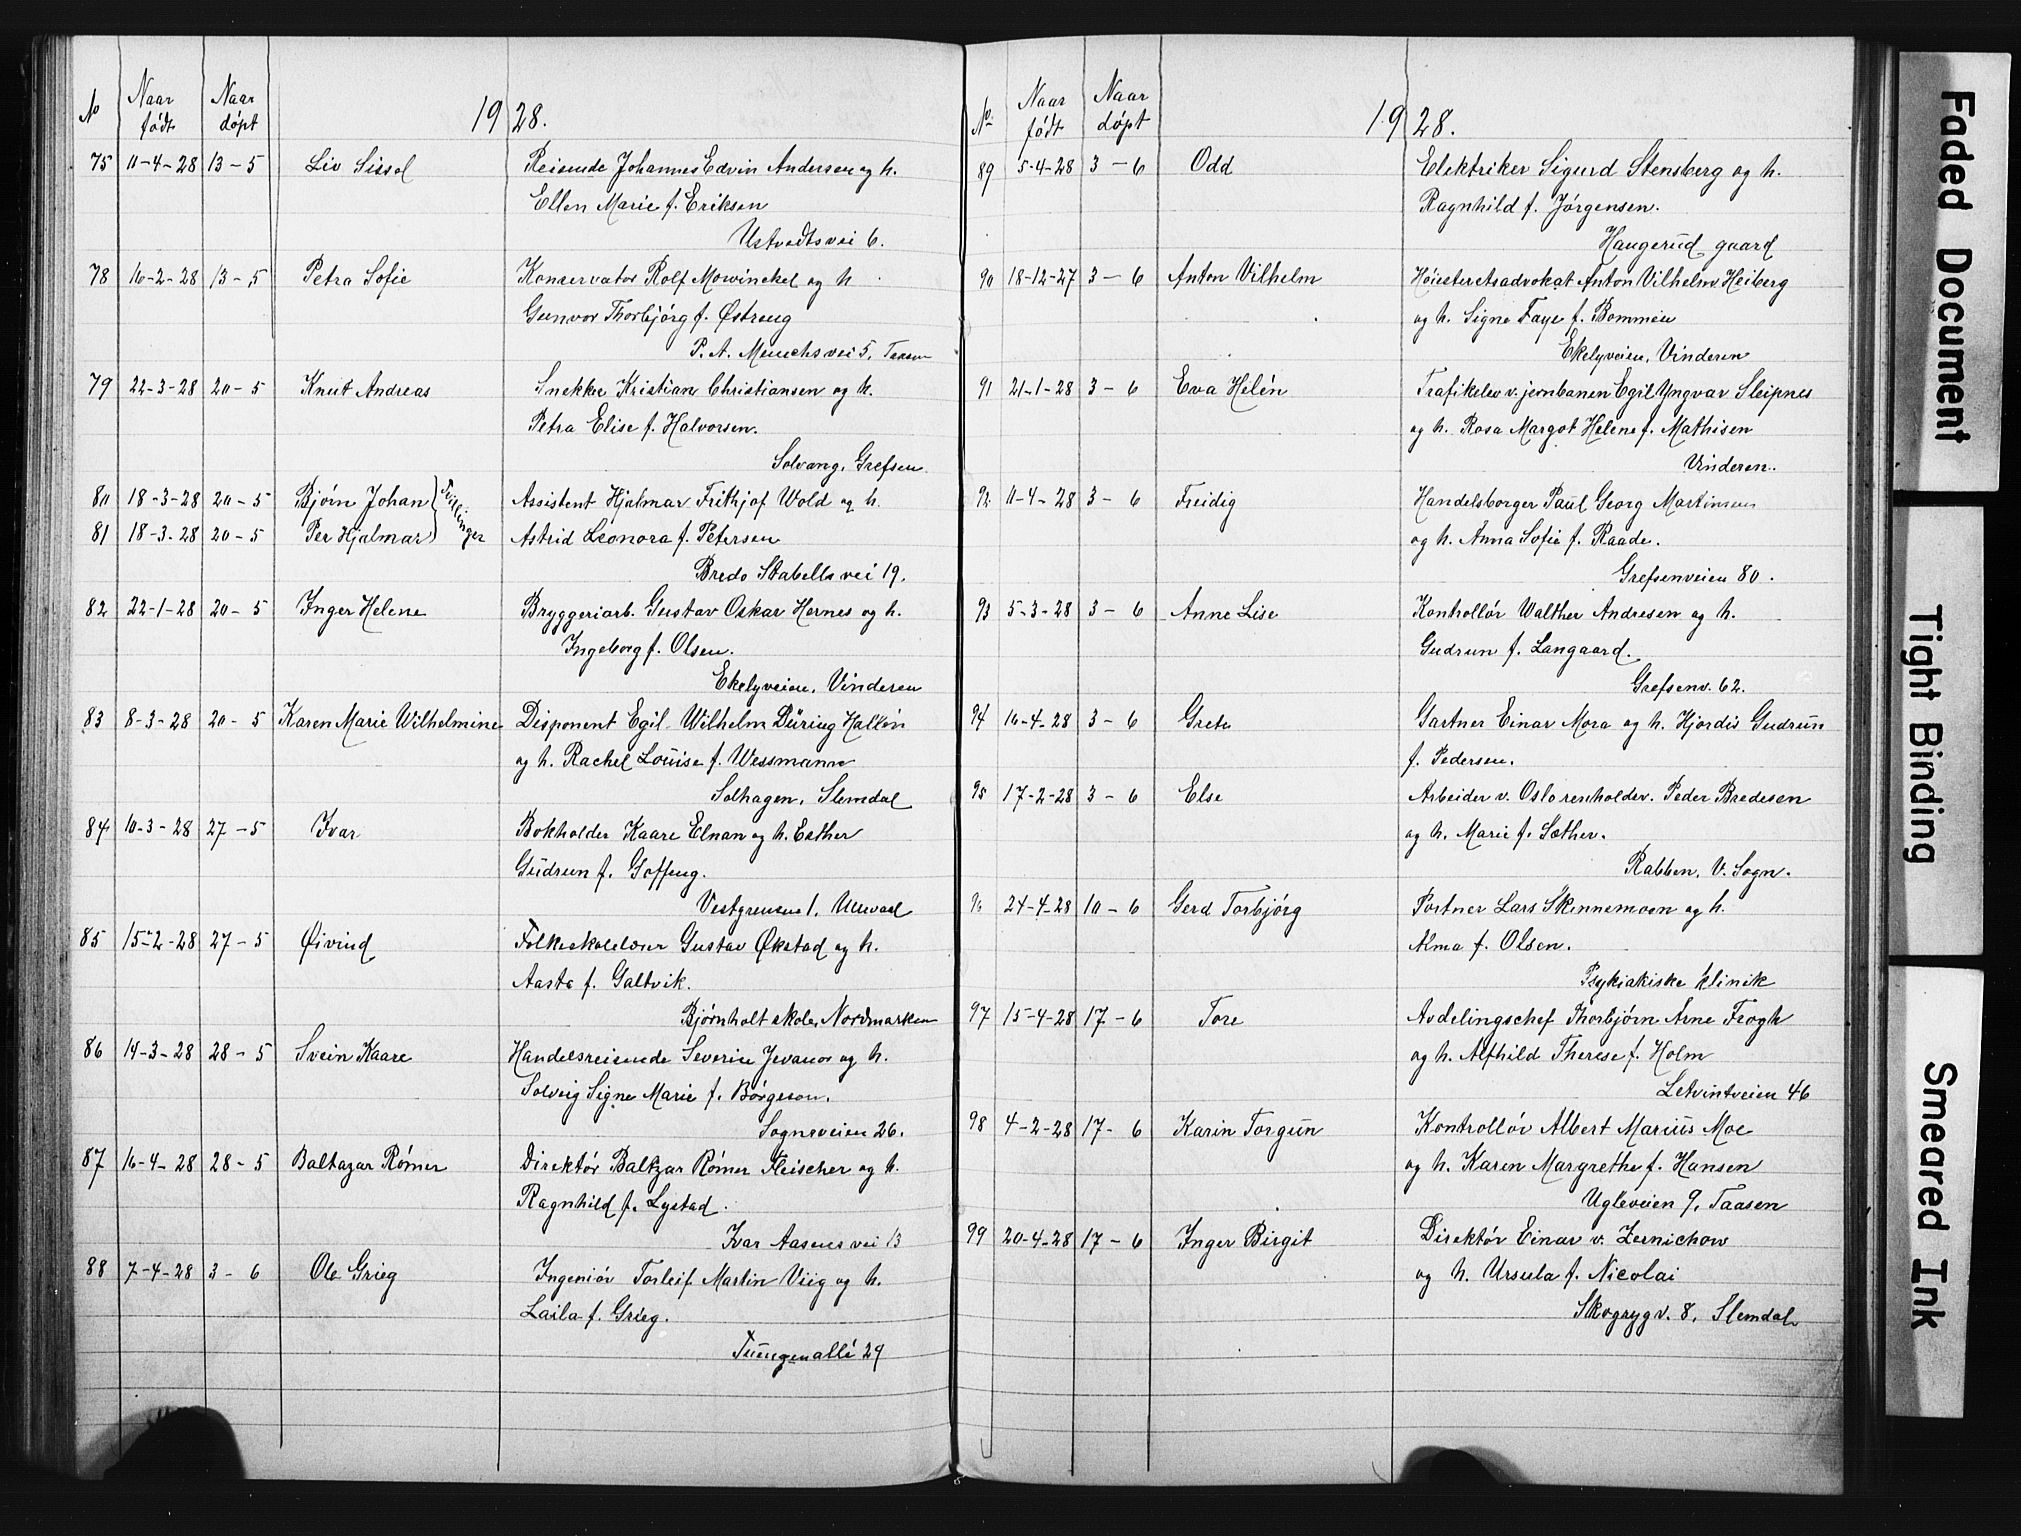 No Naar født Naar døpt 1928.
75 11-4-28 13-5 Liv Sissel Reisende Johannes Edvin Andersen og h.
Ellen Marie f. Eriksen
Ustvedtsvei 6.
78 16-2-28 13-5 Petra Sofie Konservator Rolf Mowinckel og h
Gunvor Thorbjørg f. Østreng
P. A. Munchsvei 5, Taasen
79 22-3-28 20-5 Knut Andreas Snekker Kristian Christiansen og h.
Petra Elise f. Halvorsen.
Solvang, Grefsen.
80 18-3-28 20-5 Bjørn Johan } Tvillinger Assistent Hjalmar Frithjof Wold og h.
81 18-3-28 20-5 Per Hjalmar Astrid Leonora f. Petersen
Bredo Stabells vei 19.
82 22-1-28 20-5 Inger Helene Bryggeriarb. Gustav Oskar Hernes og h.
Ingeborg f. Olsen.
Ekelyveien, Vinderen
83 8-3-28 20-5 Karen Marie Wilhelmine Disponent Egil Wilhelm Düring Hallén
og h. Rachel Louise f. Wessmann
Solhagen, Slemdal
84 10-3-28 27-5 Ivar Bokholder Kaare Elnan og h. Esther
Gudrun f. Goffeng.
Vestgrensen 1, Ullevaal
85 15-2-28 27-5 Øivind Folkeskolelærer Gustav Økstad og h.
Aasta f. Galtvik.
Bjørnholt skole, Nordmarken
86 14-3-28 28-5 Svein Kaare Handelsreisende Severin Jevanor og h.
Solveig Signe Marie f. Børgeson.
Sognsveien 26.
87 16-4-28 28-5 Baltazar Rømer Direktør Baltzar Rømer Fleischer og h.
Ragnhild f. Lystad.
Ivar Aasens vei 13
88 7-4-28 3-6 Ole Grieg Ingeniør Torleif Martin Viig og h.
Laila f. Grieg.
Tuengenallé 29
No Naar født Naar døpt 1928.
89 5-4-28 3-6 Odd Elektriker Sigurd Stensberg og h.
Ragnhild f. Jørgensen.
Haugerud gaard
90 18-12-27 3-6 Anton Vilhelm Høiesteretsadvokat Anton Vilhelm Heiberg
og h. Signe Faye f. Bommen
Ekelyveien, Vinderen
91 21-1-28 3-6 Eva Helén Trafikelev v. jernbanen Egil Yngvar Sleipnes
og h. Rosa Margot Helene f. Mathisen
Vinderen.
92 11-4-28 3-6 Freidig Handelsborger Paul Georg Martinsen
og h. Anna Sofie f. Raade.
Grefsenveien 80.
93 5-3-28 3-6 Anne Lise Kontrollør Walther Andresen og h.
Gudrun f. Langaard.
Grefsenv. 62.
94 16-4-28 3-6 Grete Gartner Einar Mora og h. Hjordis Gudrun
f. Pedersen.
95 17-2-28 3-6 Else Arbeider v. Oslo renholdsv. Peder Bredesen
og h. Marie f. Sæther.
Rabben, V. Sogn.
96 24-4-28 10-6 Gerd Torbjørg Portner Lars Skinnemoen og h.
Alma f. Olsen.
Psykiatriske klinik
97 15-4-28 17-6 Tore Avdelingschef Thorbjørn Arne Frogh
og h. Alfhild Therese f. Holm
Lervintveien 46
98 4-2-28 17-6 Karin Torgun Kontrollør Albert Marius Moe
og h. Karen Margrethe f. Hansen
Ugleveien 9, Taasen
99 20-4-28 17-6 Inger Birgit Direktør Einar v. Zernichow
og h. Ursula f. Nicolai
Skogrygv. 8, Slemdal
Faded Document
Tight Binding
Smeared Ink